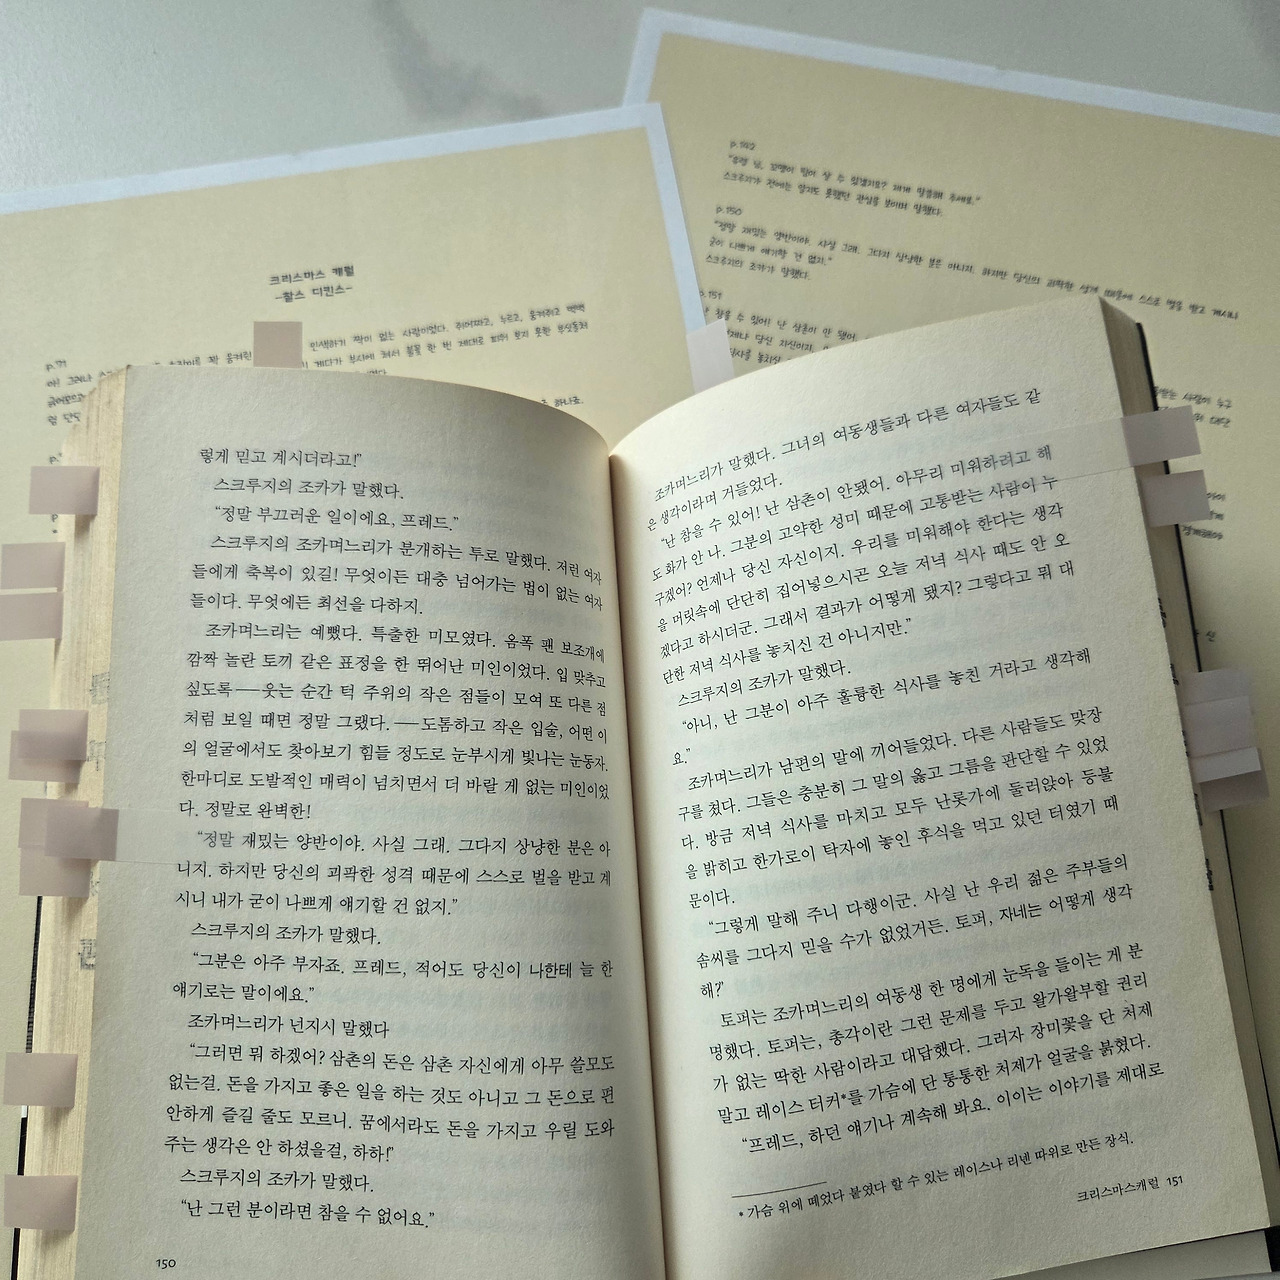 크리스마스 캐럴
-찰스 디킨스-
p.71
인색하기 짝이 없는 사람이었다. 쥐어짜고, 누르고, 움켜쥐고
p.142
"유령 님, 꼬맹이 팀이 살 수 있겠지요? 제게 말씀해 주세요."
스크루지가 전에는 알지도 못했던 관심을 보이며 말했다.
p.150
"정말 재밌는 양반이야. 사실 그래. 그다지 상냥한 분은 아니지. 하지만 당신의 괴팍한 성격 때문에 스스로 벌을 받고 계시니
굳이 나쁘게 얘기할 건 없지."
스크루지의 조카가 말했다.
p.151
참을 수 있어! 난 삼촌이 안 됐어.
렇게 믿고 계시더라고!"
스크루지의 조카가 말했다.
"정말 부끄러운 일이에요, 프레드."
스크루지의 조카며느리가 분개하는 투로 말했다. 저런 여자
들에게 축복이 있길! 무엇이든 대충 넘어가는 법이 없는 여자
들이다. 무엇에든 최선을 다하지.
조카며느리는 예뻤다. 특출한 미모였다. 옴폭 팬 보조개에
깜짝 놀란 토끼 같은 표정을 한 뛰어난 미인이었다. 입 맞추고
싶도록──웃는 순간 턱 주위의 작은 점들이 모여 또 다른 점
처럼 보일 때면 정말 그랬다.──도톰하고 작은 입술, 어떤 이
의 얼굴에서도 찾아보기 힘들 정도로 눈부시게 빛나는 눈동자.
한마디로 도발적인 매력이 넘치면서 더 바랄 게 없는 미인이었
다. 정말로 완벽한!
"정말 재밌는 양반이야. 사실 그래. 그다지 상냥한 분은 아
니지. 하지만 당신의 괴팍한 성격 때문에 스스로 벌을 받고 계
시니 내가 굳이 나쁘게 얘기할 건 없지."
스크루지의 조카가 말했다.
"그분은 아주 부자죠. 프레드, 적어도 당신이 나한테 늘 한
얘기로는 말이에요."
조카며느리가 넌지시 말했다
"그러면 뭐 하겠어? 삼촌의 돈은 삼촌 자신에게 아무 쓸모도
없는걸. 돈을 가지고 좋은 일을 하는 것도 아니고 그 돈으로 편
안하게 즐길 줄도 모르니. 꿈에서라도 돈을 가지고 우릴 도와
주는 생각은 안 하셨을걸, 하하!"
스크루지의 조카가 말했다.
"난 그런 분이라면 참을 수 없어요."
150
조카며느리가 말했다. 그녀의 여동생들과 다른 여자들도 같
은 생각이라며 거들었다.
"난 참을 수 있어! 난 삼촌이 안됐어. 아무리 미워하려고 해
도 화가 안 나. 그분의 고약한 성미 때문에 고통받는 사람이 누
구겠어? 언제나 당신 자신이지. 우리를 미워해야 한다는 생각
을 머릿속에 단단히 집어넣으시곤 오늘 저녁 식사 때도 안 오
겠다고 하시더군. 그래서 결과가 어떻게 됐지? 그렇다고 뭐 대
단한 저녁 식사를 놓치신 건 아니지만."
스크루지의 조카가 말했다.
"아니, 난 그분이 아주 훌륭한 식사를 놓친 거라고 생각해
요."
조카며느리가 남편의 말에 끼어들었다. 다른 사람들도 맞장
구를 쳤다. 그들은 충분히 그 말의 옳고 그름을 판단할 수 있었
다. 방금 저녁 식사를 마치고 모두 난롯가에 둘러앉아 등불
을 밝히고 한가로이 탁자에 놓인 후식을 먹고 있던 터였기 때
문이다.
"그렇게 말해 주니 다행이군. 사실 난 우리 젊은 주부들의
솜씨를 그다지 믿을 수가 없었거든. 토퍼, 자네는 어떻게 생각
해?"
토퍼는 조카며느리의 여동생 한 명에게 눈독을 들이는 게 분
명했다. 토퍼는, 총각이란 그런 문제를 두고 왈가왈부할 권리
가 없는 딱한 사람이라고 대답했다. 그러자 장미꽃을 단 처제
말고 레이스 터커*를 가슴에 단 통통한 처제가 얼굴을 붉혔다.
"프레드, 하던 얘기나 계속해 봐요. 이이는 이야기를 제대로
* 가슴 위에 떼었다 붙였다 할 수 있는 레이스나 리넨 따위로 만든 장식.
크리스마스캐럴 151